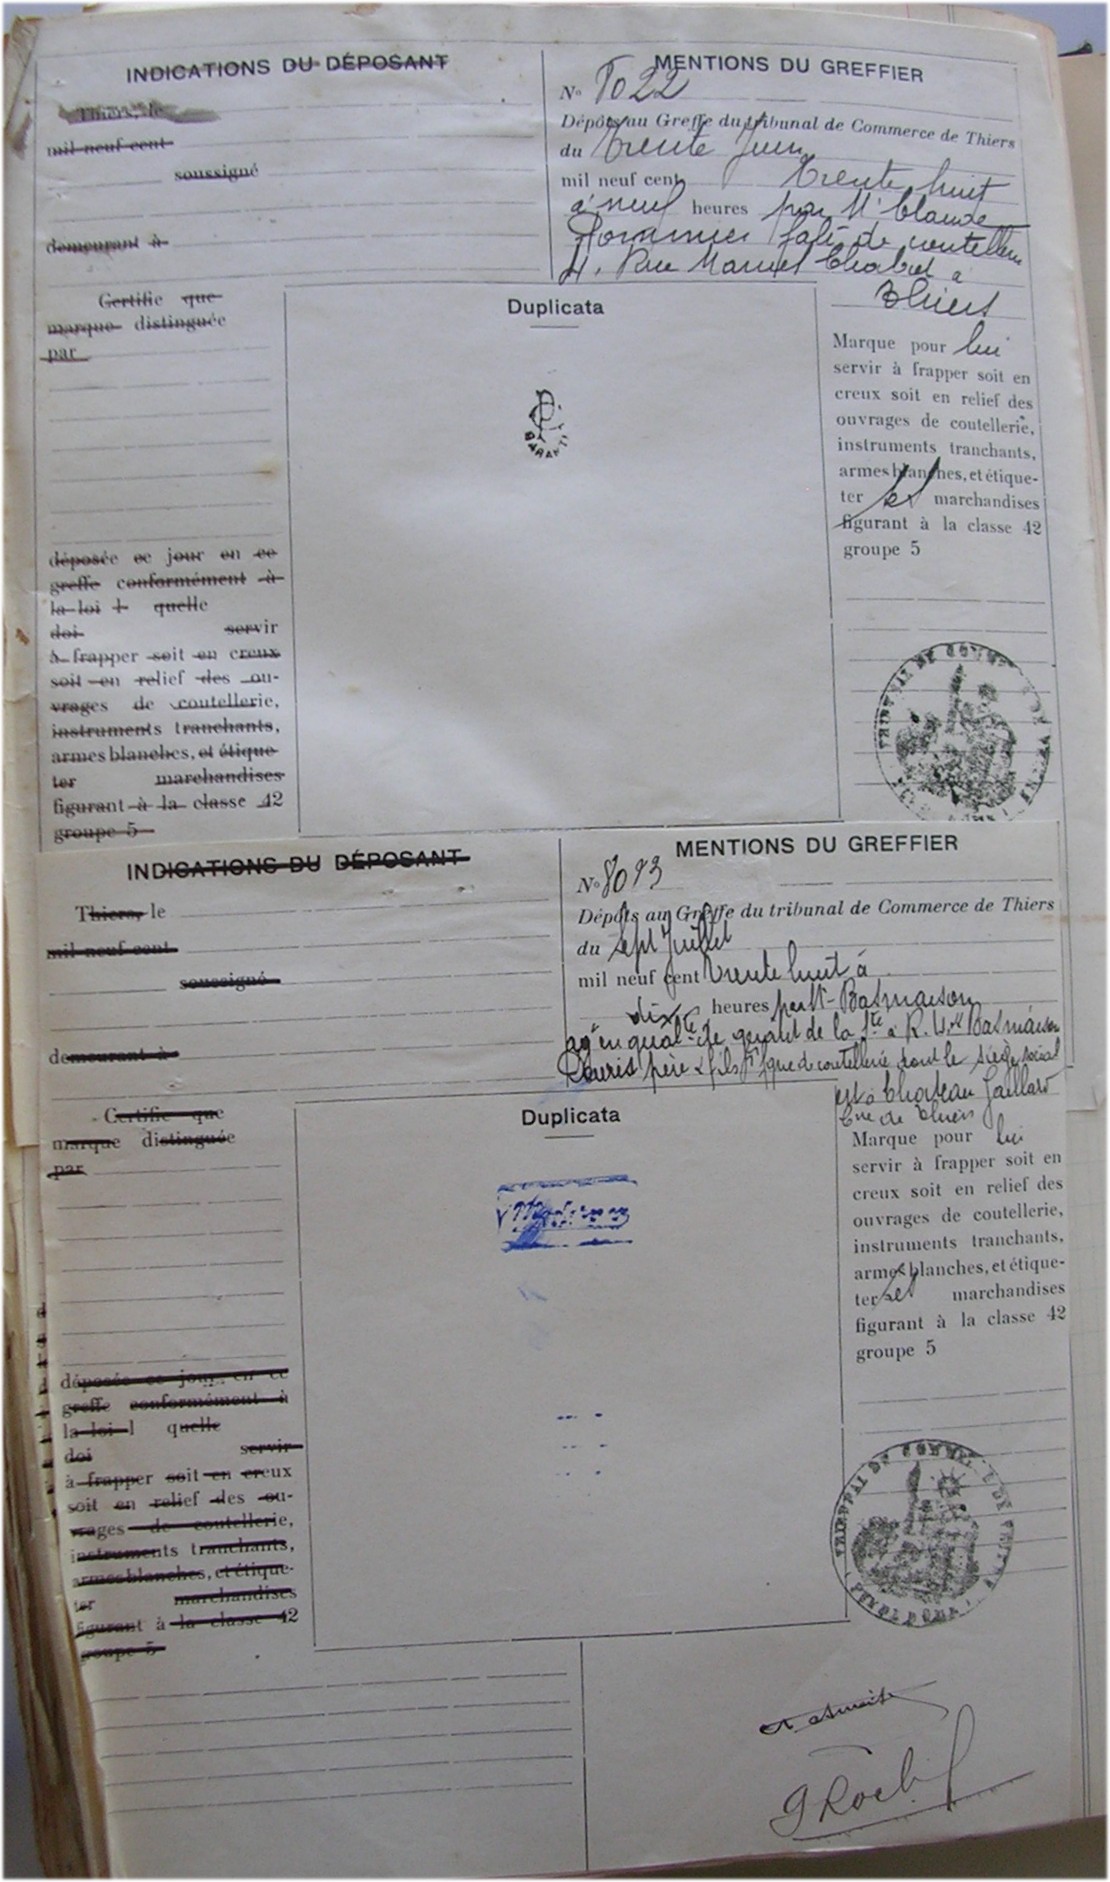 INDICATIONS DU DÉPOSANT
Thiers, le
mil neuf cent
soussigné
demeurant à
Certifie que
marque distinguée
par
déposée ce jour en ce
greffe conformément à
la loi l quelle
doi servir
à frapper soit en creux
soit en relief des ou-
vrages de coutellerie,
instruments tranchants,
armes blanches, et étique-
ter marchandises
figurant à la classe 42
groupe 5
MENTIONS DU GREFFIER
No 8022
Dépôts au Greffe du tribunal de Commerce de Thiers
du trente Juin
mil neuf cent trente huit
à neuf heures par Mr Claude
Pommier fabt de coutellerie
4, Rue Manuel Chabrol à
Thiers
Duplicata
GARANTI
Marque pour lui
servir à frapper soit en
creux soit en relief des
ouvrages de coutellerie,
instruments tranchants,
armes blanches, et étique-
ter les marchandises
figurant à la classe 42
groupe 5
TRIBUNAL DE COMMERCE
INDICATIONS DU DÉPOSANT
Thiers, le
mil neuf cent
soussigné
demeurant à
Certifie que
marque distinguée
par
déposée ce jour en ce
greffe conformément à
la loi l quelle
doi servir
à frapper soit en creux
soit en relief des ou-
vrages de coutellerie,
instruments tranchants,
armes blanches, et étique-
ter marchandises
figurant à la classe 42
groupe 5
MENTIONS DU GREFFIER
No 8023
Dépôts au Greffe du tribunal de Commerce de Thiers
du sept Juillet
mil neuf cent trente huit à
dix heures par Mr Batmaison
agt en qualité de gérant de la Sté à R. L. Batmaison
Douris père & fils Fque de coutellerie dont le siège social
est à Chateau Gaillard
Cne de Thiers
Duplicata
Marque pour lui
servir à frapper soit en
creux soit en relief des
ouvrages de coutellerie,
instruments tranchants,
armes blanches, et étique-
ter les marchandises
figurant à la classe 42
groupe 5
TRIBUNAL DE COMMERCE DE THIERS